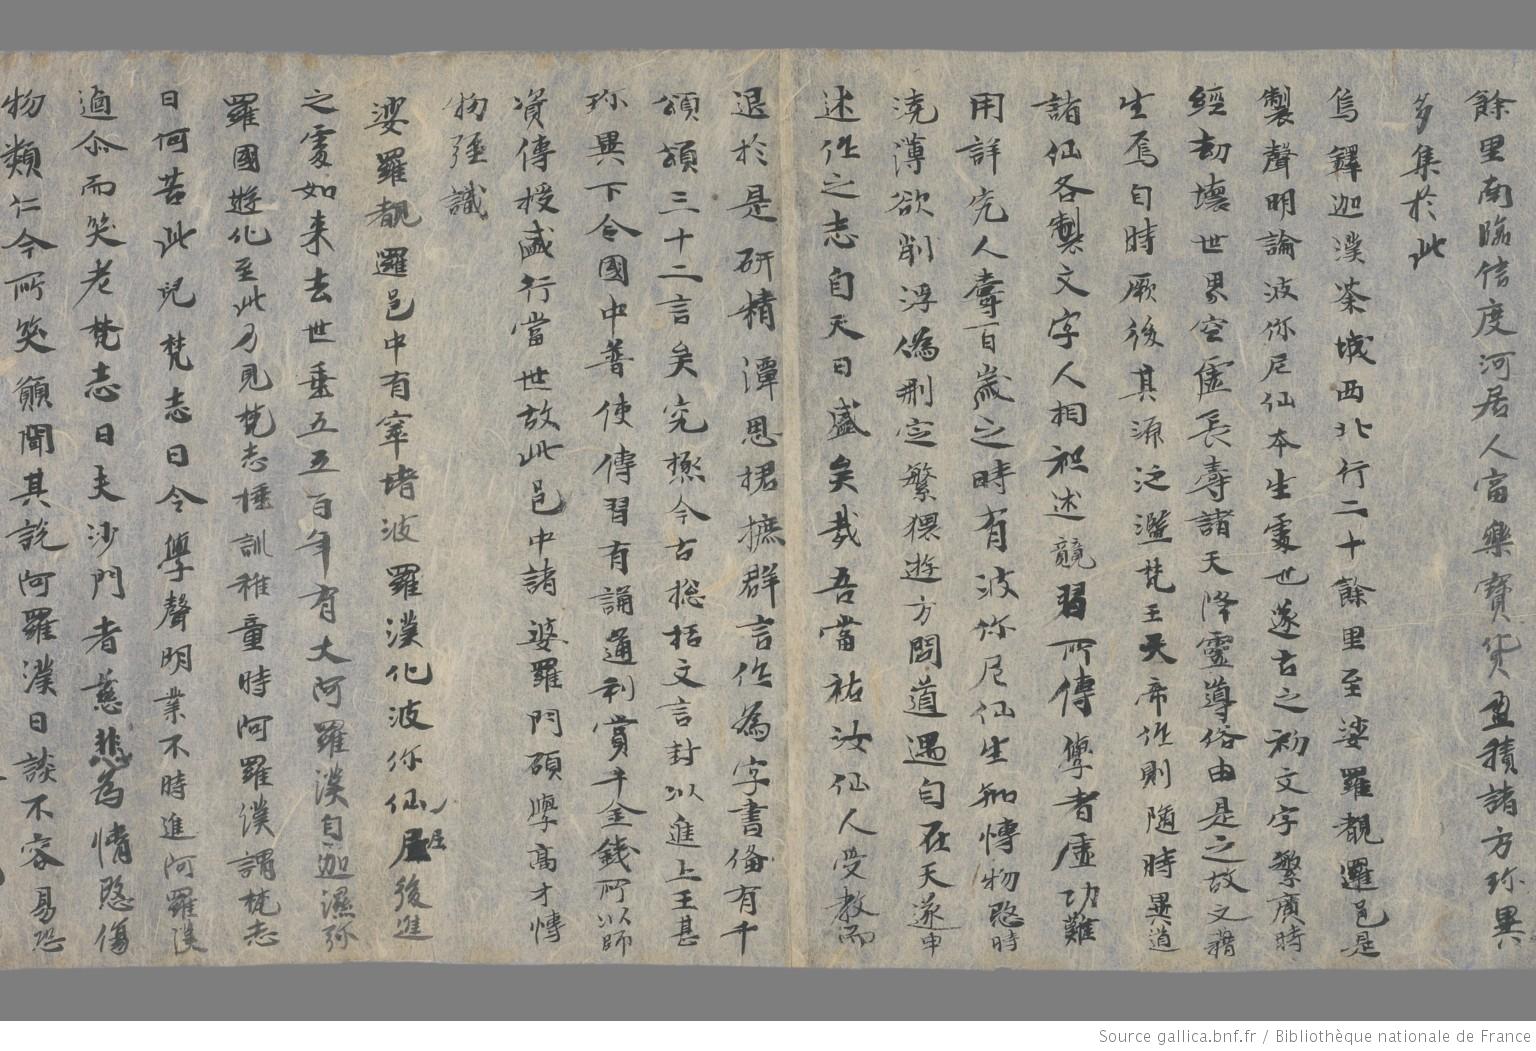 餘里南臨信度河居人富樂寶貨盈積諸方珎異
多集於此
烏鐸迦漢荼城西北行二十餘里至娑羅覩邏邑是
製聲明論波你尼仙本生處也遂古之初文字繁廣時
經劫壞世界空虛長壽諸天降靈導俗由是之故文籍
生焉自時厥後其源泛濫梵王天帝作則隨時異道
諸仙各製文字人相祖述競習所傳學者虛功難
用詳究人壽百歲之時有波你尼仙生知愽物愍時
澆薄欲削浮偽刪定繁猥遊方問道遇自在天遂申
述作之志自天曰盛矣哉吾當祐汝仙人受教而
退於是研精潭思捃摭群言作為字書備有千
頌頌三十二言矣究極今古揔括文言封以進上王甚
珎異下令國中普使傳習有誦通利賞千金錢所以師
資傳授盛行當世故此邑中諸婆羅門碩學高才愽
物强識
娑羅覩邏邑中有窣堵波羅漢化波你仙尼後進
之處如来去世垂五五百年有大阿羅漢自迦濕弥
羅國遊化至此乃見梵志捶訓稚童時阿羅漢謂梵志
曰何苦此兒梵志曰令學聲明業不時進阿羅漢
逌尒而笑老梵志曰夫沙門者慈悲為情愍傷
物類仁今所笑願聞其說阿羅漢曰談不容易恐
Source gallica.bnf.fr / Bibliothèque nationale de France